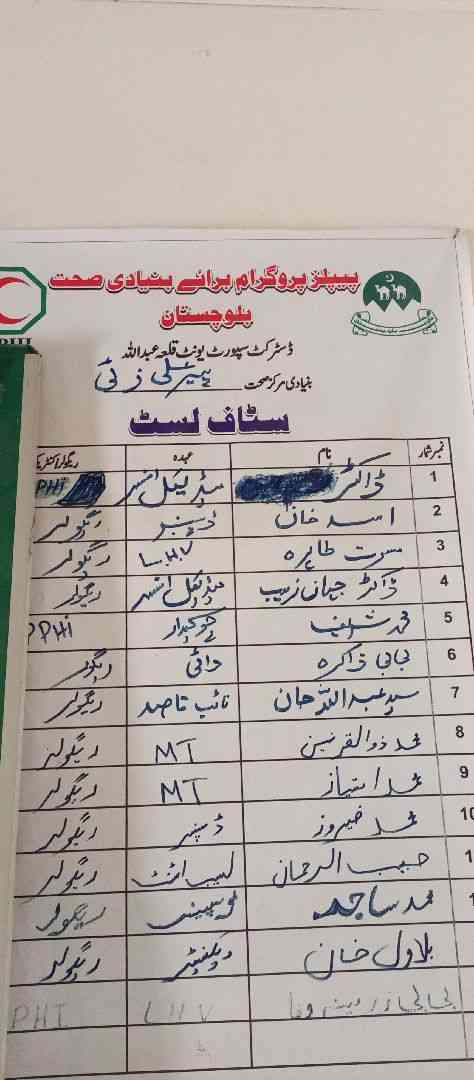 پیپلز پروگرام برائے بنیادی صحت
بلوچستان
ڈسٹرکٹ سپورٹ یونٹ قلعہ عبداللہ
بنیادی مرکز صحت پیر علی زئی
سٹاف لسٹ
نمبر شمار نام عہدہ
1 ڈاکٹر میڈیکل آفیسر PHI
2 اسد خان ڈسپنسر ریگولر
3 مسرت طاہرہ LHV ریگولر
4 ڈاکٹر جہان زیب میڈیکل آفیسر ریگولر
5 محمد شریف چوکیدار PPHI
6 بی بی ذاکرہ دائی ریگولر
7 سید عبداللہ جان نائب قاصد ریگولر
8 محمد ذوالقرنین MT ریگولر
9 محمد امتیاز MT ریگولر
10 محمد فیروز ڈسپنسر ریگولر
1 حبیب الرحمان ریگولر
1 محمد ساجد ریگولر
بلاول خان ویکسینیٹر ریگولر
بی بی LHV PHI